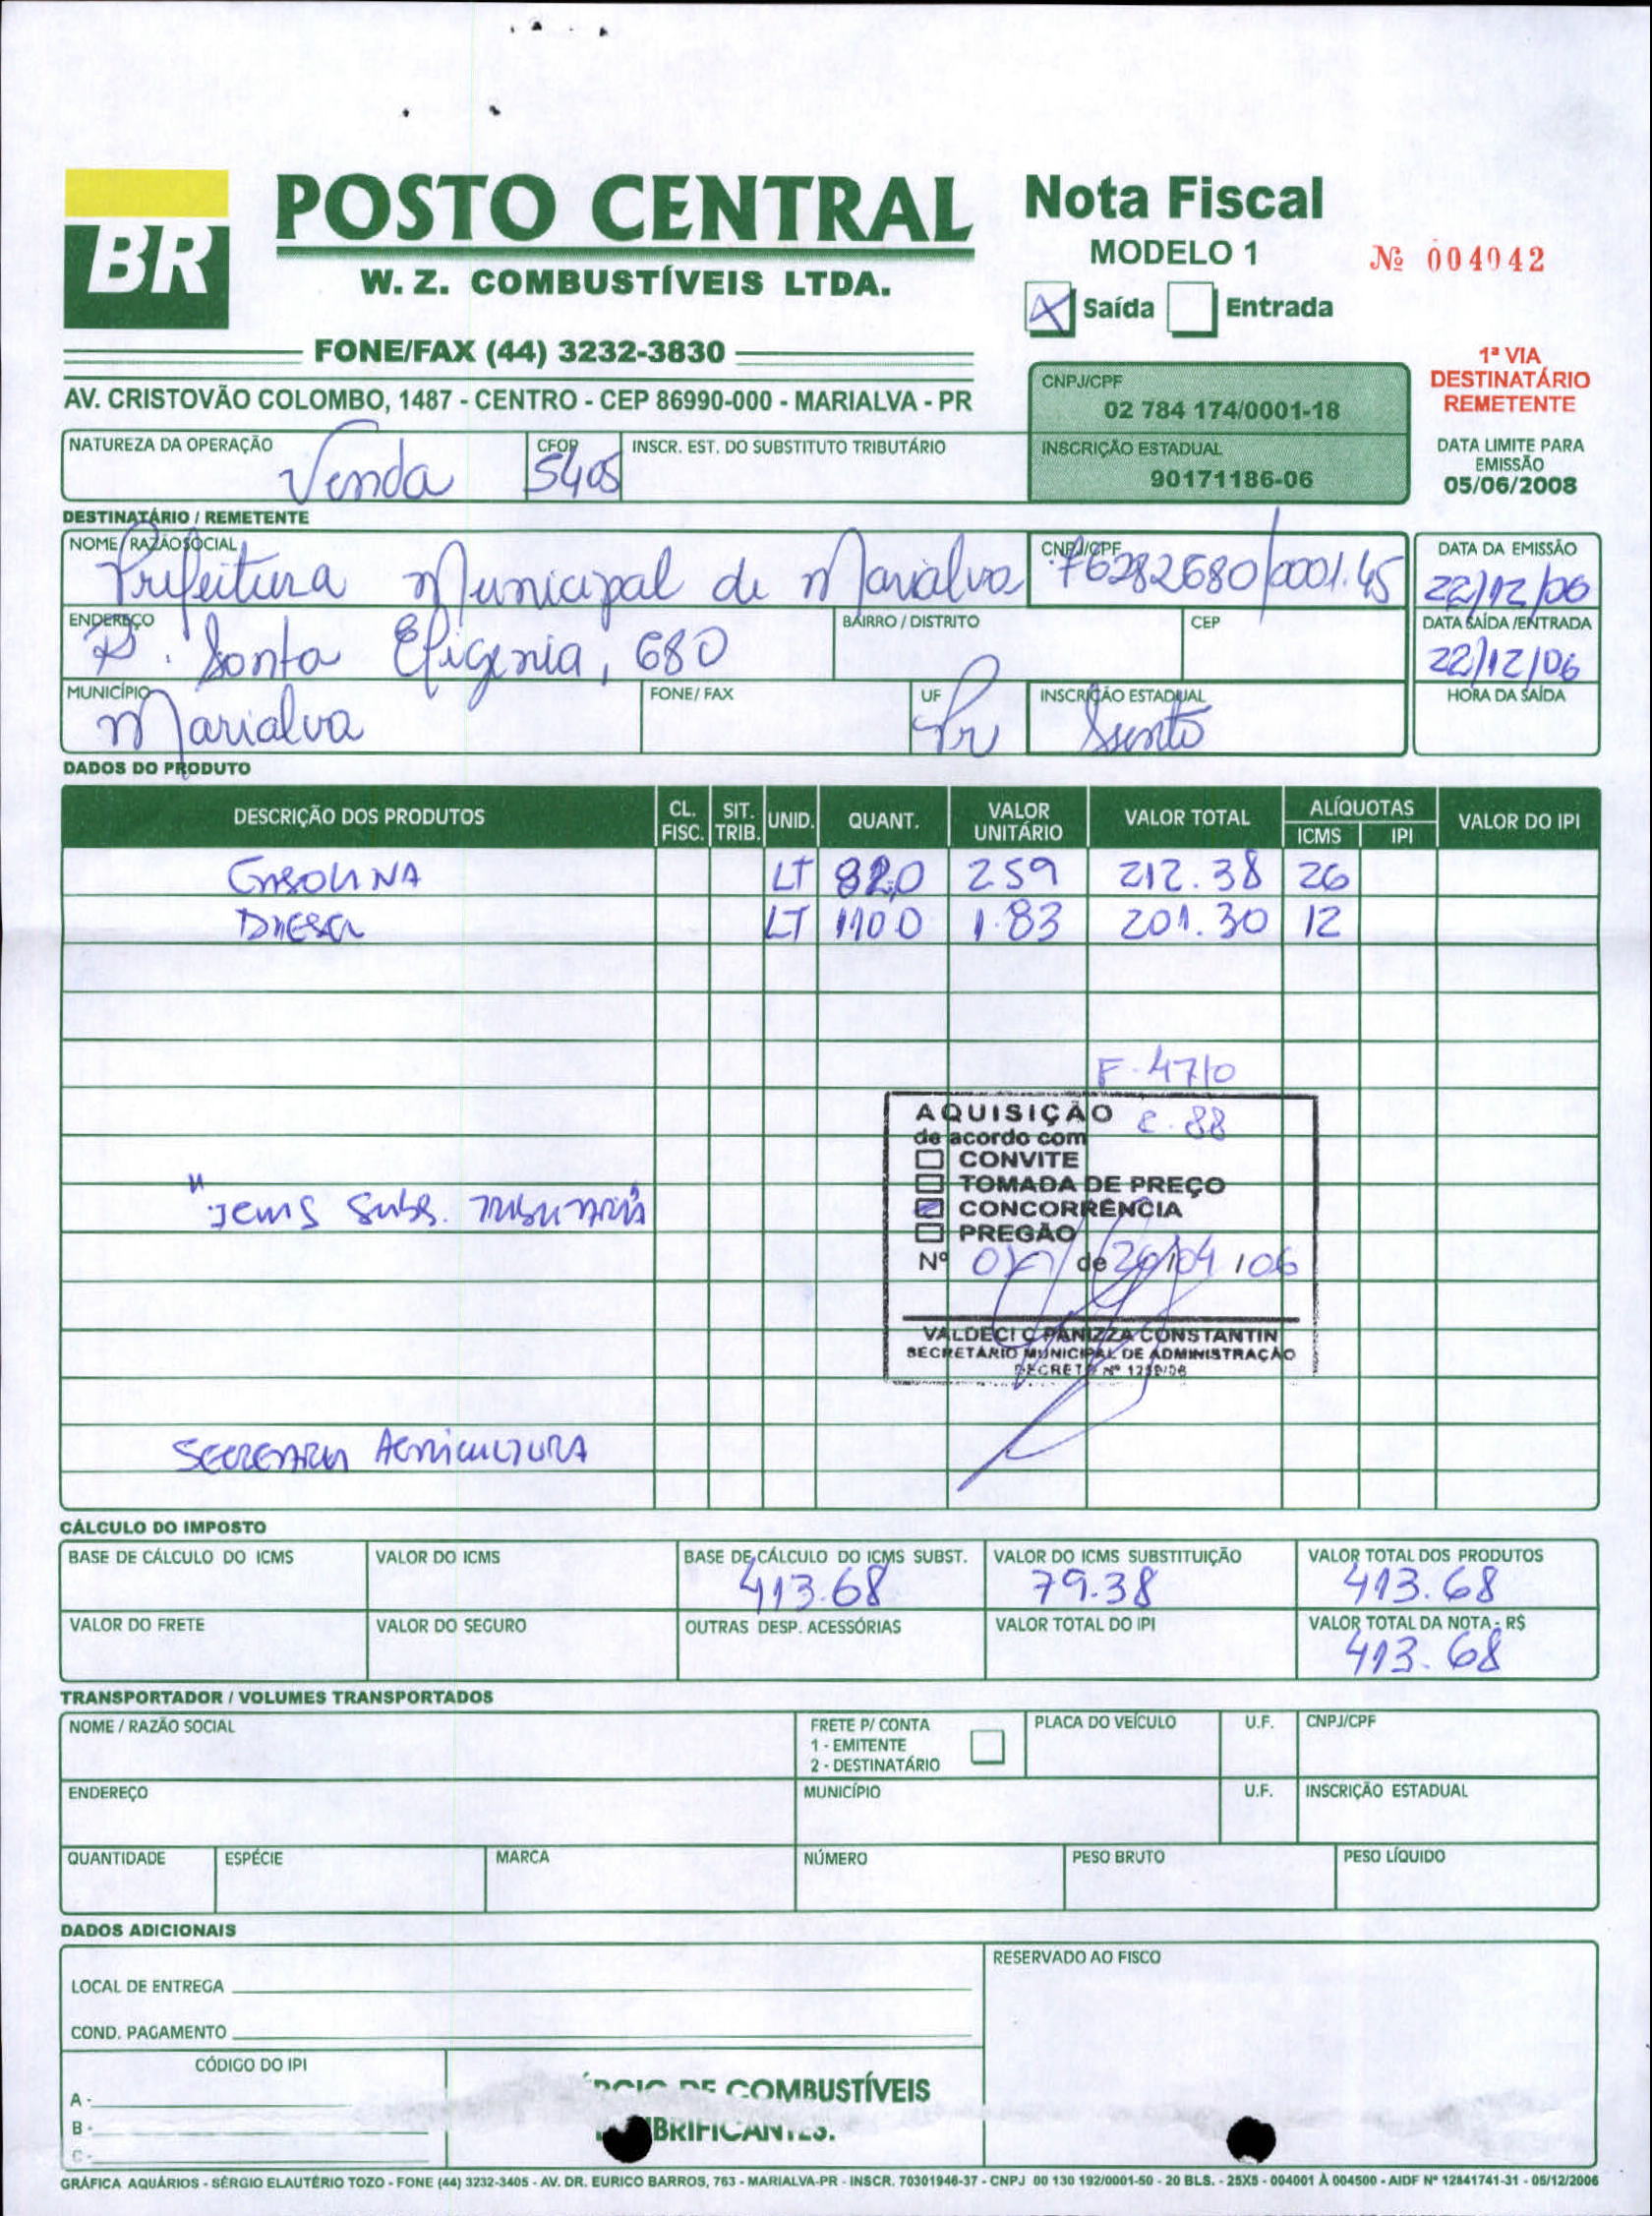 BR
POSTO CENTRAL
W. Z. COMBUSTÍVEIS LTDA.
FONE/FAX (44) 3232-3830
AV. CRISTOVÃO COLOMBO, 1487 - CENTRO - CEP 86990-000 - MARIALVA - PR
Nota Fiscal
MODELO 1
Nº 004042
X Saída Entrada
1ª VIA
DESTINATÁRIO
REMETENTE
CNPJ/CPF
02 784 174/0001-18
INSCRIÇÃO ESTADUAL
90171186-06
DATA LIMITE PARA
EMISSÃO
05/06/2008
NATUREZA DA OPERAÇÃO CFOP INSCR. EST. DO SUBSTITUTO TRIBUTÁRIO
Venda 5405
DESTINATÁRIO / REMETENTE
NOME/RAZÃO SOCIAL CNPJ/CPF DATA DA EMISSÃO
Prefeitura Municipal de Marialva 76282680/0001.45 22/12/06
ENDEREÇO BAIRRO / DISTRITO CEP DATA SAÍDA /ENTRADA
R. Santa Efigenia, 680 22/12/06
MUNICÍPIO FONE/ FAX UF INSCRIÇÃO ESTADUAL HORA DA SAÍDA
Marialva Pr Isento
DADOS DO PRODUTO
DESCRIÇÃO DOS PRODUTOS CL. FISC. SIT. TRIB. UNID. QUANT. VALOR UNITÁRIO VALOR TOTAL ALÍQUOTAS ICMS IPI VALOR DO IPI
GASOLINA LT 82,0 259 212.38 26
DIESEL LT 110 0 1.83 201.30 12
F. 4710
AQUISIÇÃO
de acordo com
C. 88
CONVITE
TOMADA DE PREÇO
CONCORRÊNCIA
PREGÃO
Nº de 20/04 / 06
VALDECI C PANIZZA CONSTANTIN
SECRETARIO MUNICIPAL DE ADMINISTRAÇÃO
DECRETO Nº
"ICMS SUBS. TRIBUTARIA
SECRETARIA AGRICULTURA
CÁLCULO DO IMPOSTO
BASE DE CÁLCULO DO ICMS VALOR DO ICMS BASE DE CÁLCULO DO ICMS SUBST. VALOR DO ICMS SUBSTITUIÇÃO VALOR TOTAL DOS PRODUTOS
413.68 79.38 413.68
VALOR DO FRETE VALOR DO SEGURO OUTRAS DESP. ACESSÓRIAS VALOR TOTAL DO IPI VALOR TOTAL DA NOTA - R$
413.68
TRANSPORTADOR / VOLUMES TRANSPORTADOS
NOME / RAZÃO SOCIAL FRETE P/ CONTA PLACA DO VEÍCULO U.F. CNPJ/CPF
1 - EMITENTE
2 - DESTINATÁRIO
ENDEREÇO MUNICÍPIO U.F. INSCRIÇÃO ESTADUAL
QUANTIDADE ESPÉCIE MARCA NÚMERO PESO BRUTO PESO LÍQUIDO
DADOS ADICIONAIS
RESERVADO AO FISCO
LOCAL DE ENTREGA
COND. PAGAMENTO
CÓDIGO DO IPI
A -
B -
C -
DE COMBUSTÍVEIS
GRÁFICA AQUÁRIOS - SÉRGIO ELAUTÉRIO TOZO - FONE (44) 3232-3405 - AV. DR. EURICO BARROS, 763 - MARIALVA-PR - INSCR. 70301946-37 - CNPJ 00 130 192/0001-50 - 20 BLS. - 25X5 - 004001 À 004500 - AIDF Nº 12841741-31 - 05/12/2006